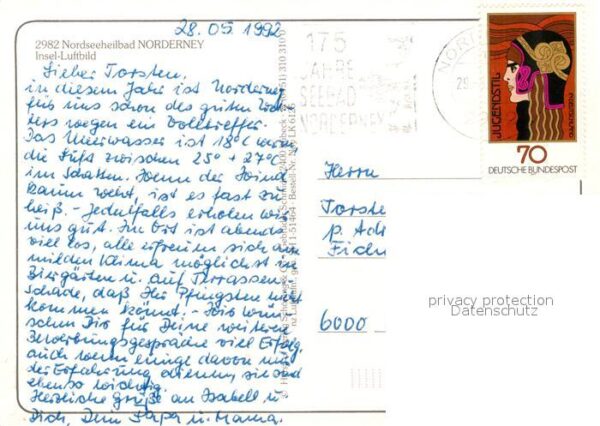 28.05.1992
2982 Nordseeheilbad NORDERNEY
Insel-Luftbild
Lieber Torsten,
in diesem Jahr ist Norderney
für uns schon des guten Wet-
ters wegen ein Volltreffer.
Das Meerwasser ist 18° warm,
die Luft zwischen 25° + 27°C
im Schatten. Wenn der Wind
kaum weht, ist es fast zu
heiß. - Jedenfalls erholen wir
uns gut. Im Ort ist abends
viel los, alle erfreuen sich am
milden Klima möglichst in
Biergärten u. auf Terrassen.
Schade, daß Ihr Pfingsten nicht
kommen könnt. - Wir wün-
schen Dir für Deine weiteren
Bewerbungsgespräche viel Erfolg,
auch wenn einige davon nur
der Erfahrung dienen, sie sind
ebenso wichtig.
Herzliche Grüße an Isabell u.
Dich, Dein Papa u. Mama.
175
JAHRE
SEEBAD
NORDERNEY
JUGENDSTIL
70
DEUTSCHE BUNDESPOST
Herrn
Torste
p. Adr
Fich
6000
privacy protection
Datenschutz